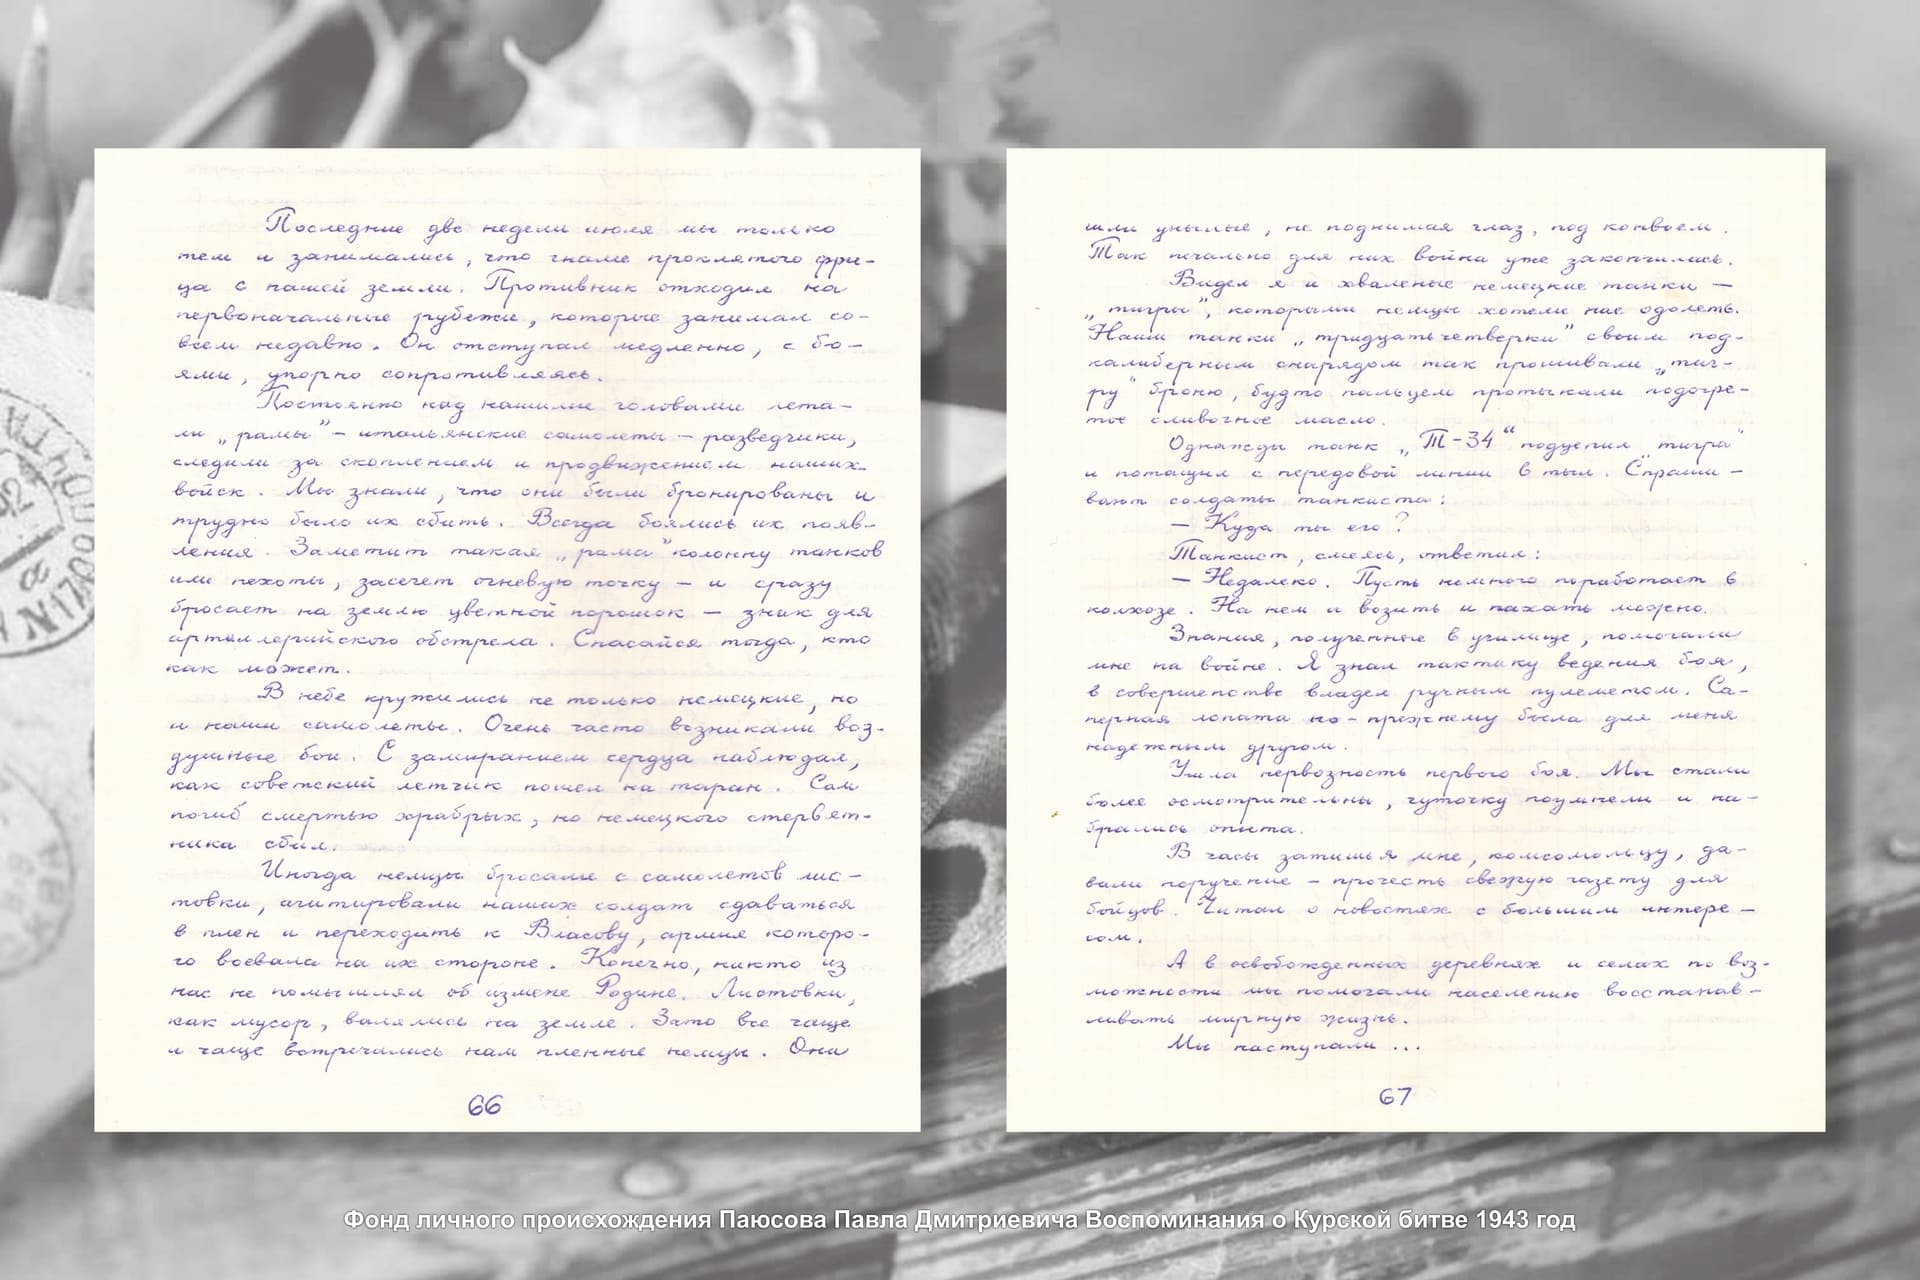 Последние две недели июля мы только
тем и занимались, что гнали проклятого фри-
ца с нашей земли. Противник отходил на
первоначальные рубежи, которые занимал со-
всем недавно. Он отступал медленно, с бо-
ями, упорно сопротивляясь.
Постоянно над нашими головами лета-
ли „рамы" - итальянские самолеты - разведчики,
следили за скоплением и продвижением наших
войск. Мы знали, что они были бронированы и
трудно было их сбить. Всегда боялись их появ-
ления. Заметит такая „рама" колонну танков
или пехоты, засечет огневую точку - и сразу
бросает на землю цветной порошок - знак для
артиллерийского обстрела. Спасайся тогда, кто
как может.
В небе кружились не только немецкие, но
и наши самолеты. Очень часто возникали воз-
душные бои. С замиранием сердца наблюдал,
как советский летчик пошел на таран. Сам
погиб смертью храбрых, но немецкого стервят-
ника сбил.
Иногда немцы бросали с самолетов лис-
товки, агитировали наших солдат сдаваться
в плен и переходить к Власову, армия которо-
го воевала на их стороне. Конечно, никто из
нас не помышлял об измене Родине. Листовки,
как мусор, валялись на земле. Зато все чаще
и чаще встречались нам пленные немцы. Они
66
шли унылые, не поднимая глаз, под конвоем.
Так печально для них война уже закончилась.
Видел я и хваленые немецкие танки -
„тигры", которыми немцы хотели нас одолеть.
Наши танки „тридцатьчетверки" своим под-
калиберным снарядом так прошивали „тиг-
ру" броню, будто пальцем протыкали подогре-
тое сливочное масло.
Однажды танк „Т-34" подцепил „тигра"
и потащил с передовой линии в тыл. Спраши-
вают солдаты танкиста:
- Куда ты его?
Танкист, смеясь, ответил:
- Недалеко. Пусть немного поработает в
колхозе. На нем и возить и пахать можно.
Знания, полученные в училище, помогали
мне на войне. Я знал тактику ведения боя,
в совершенстве владел ручным пулеметом. Са-
перная лопата по-прежнему была для меня
надежным другом.
Ушла нервозность первого боя. Мы стали
более осмотрительны, чуточку поумнели и на-
брались опыта.
В часы затишья мне, комсомольцу, да-
вали поручение - прочесть свежую газету для
бойцов. Читал о новостях с большим интере-
сом.
А в освобожденных деревнях и селах по воз-
можности мы помогали населению восстанав-
ливать мирную жизнь.
Мы наступали ...
67
Фонд личного происхождения Паюсова Павла Дмитриевича Воспоминания о Курской битве 1943 год